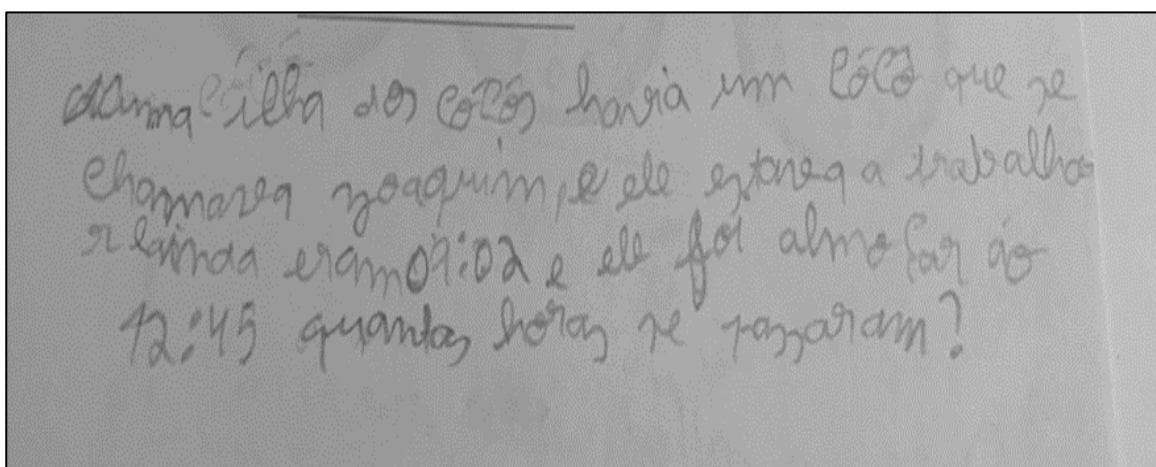 Numa ilha dos cocós havia um cocô que se
chamava yoaquim, e ele estava a trabalha
r e ainda eram 09:02 e ele foi almoçar ás
12:45 quantas horas se passaram?